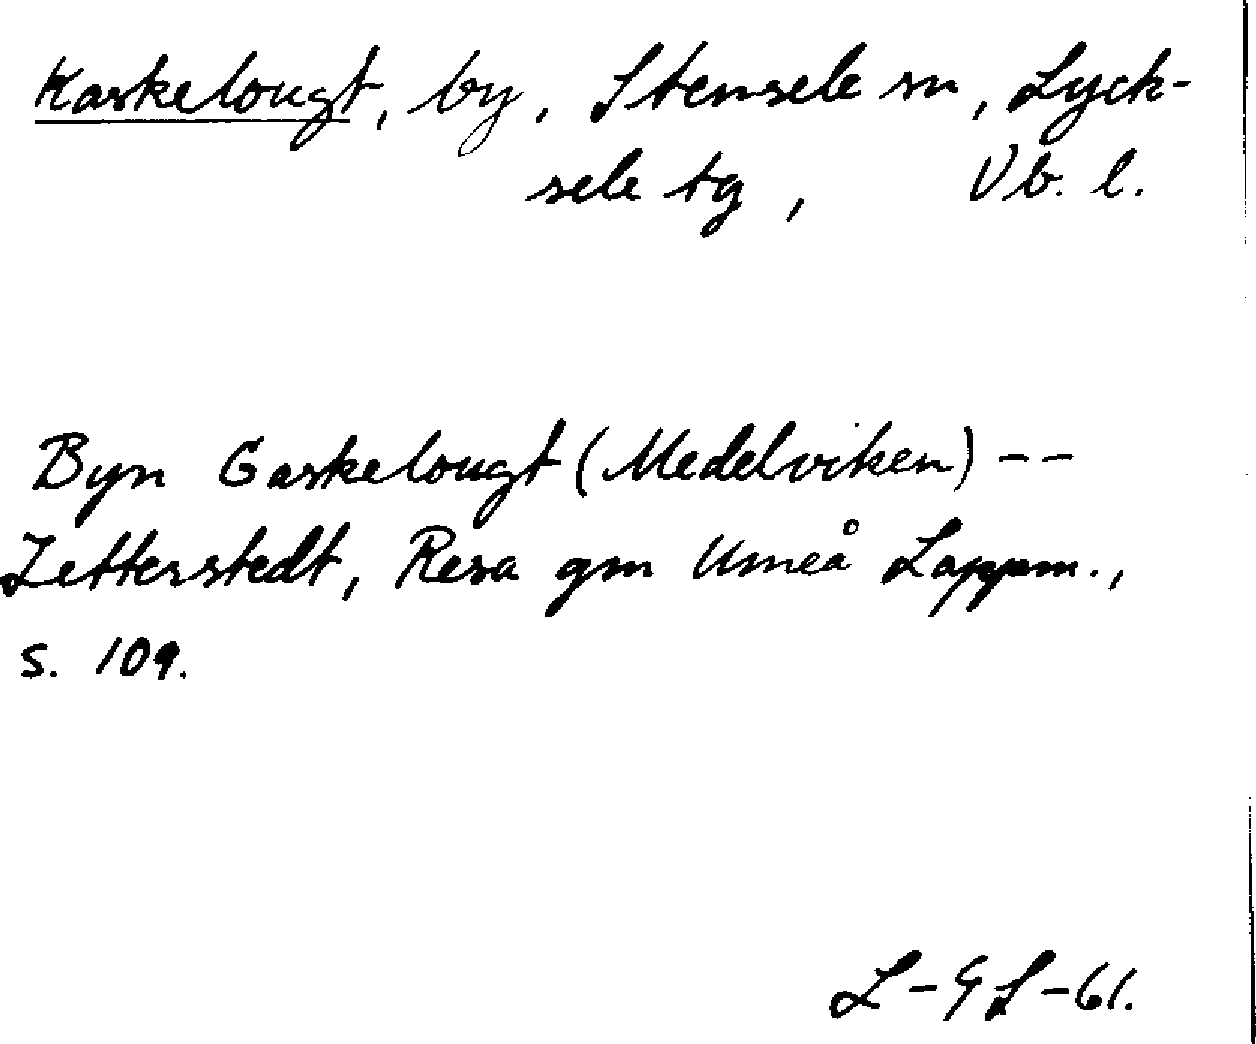 Kaskelougt, by, Stensele sn, Lyck-
sele tg, Vb. l.
Byn Gaskelougt (Medelviken) --
Zetterstedt, Resa gm Umeå Lappm.,
s. 109.
L-GS-61.